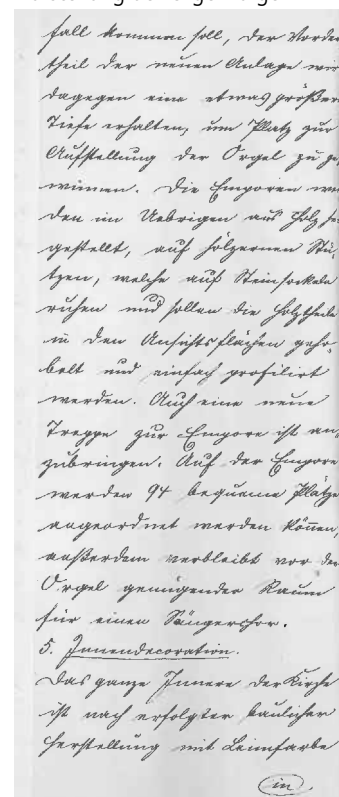 fall kommen soll, der Vorder
theil der neuen Anlage wir
dagegen eine etwas größere
Tiefe erhalten, um Platz zur
Aufstellung der Orgel zu ge,
winnen. Die Emporen wer
den im Uebrigen aus Holz he
gestellt, auf hölzernen Stü,
tzen, welche auf Steinsockeln
ruhen und sollen die Holztheile
in den Ansichtsflächen geho,
belt und einfach profilirt
werden. Auch eine neue
Treppe zur Empore ist an,
zubringen. Auf der Empore
werden 94 bequeme Plätze
angeordnet werden können,
außerdem verbleibt vor der
Orgel genügender Raum
für einen Sängerchor.
5. Innendecoration.
Das ganze Innere der Kirche
ist nach erfolgter baulicher
Herstellung mit Leimfarbe
in